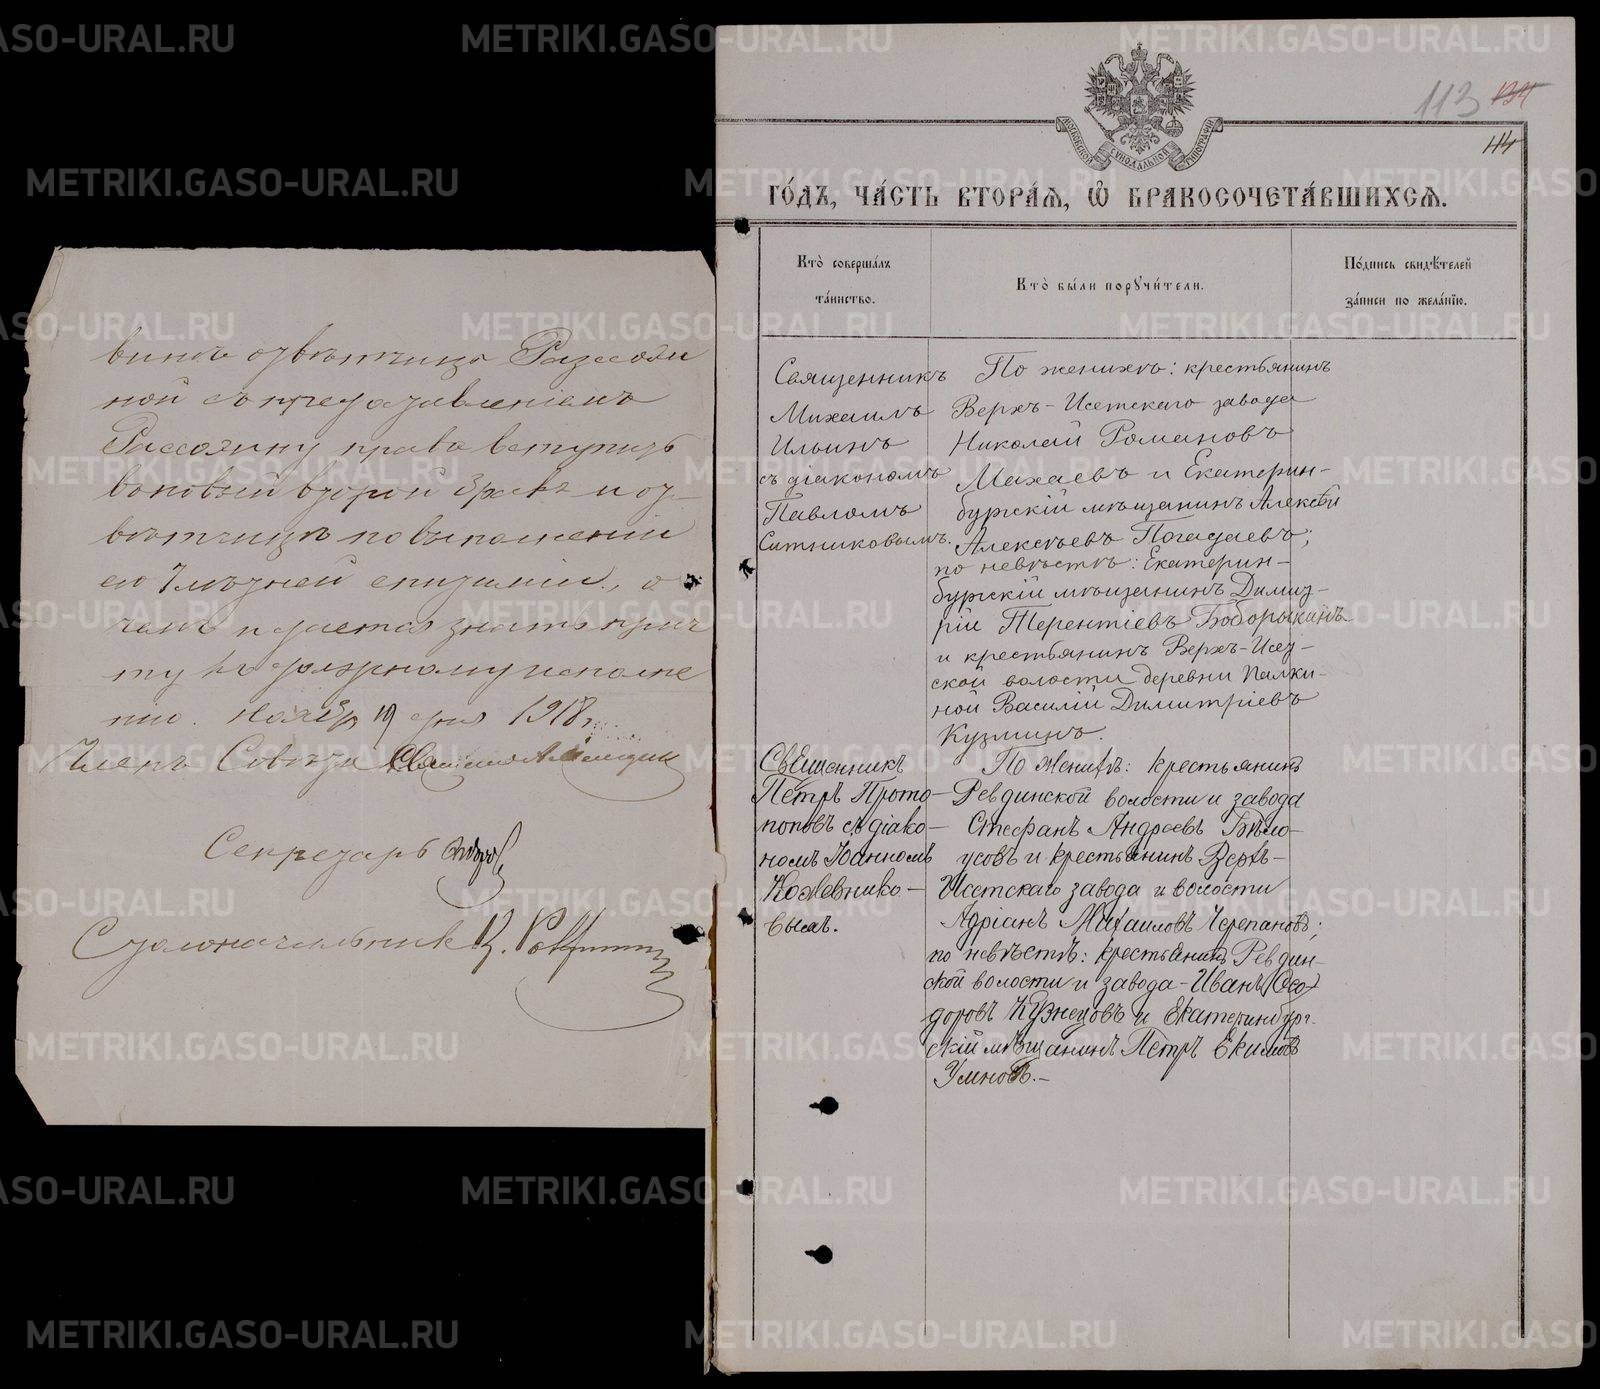 винѣ отвѣтчицы Рассохи
ной съ предоставленіемъ
Рассохину права вступить
въ новый второй бракъ и от-
вѣтчицѣ по выполненіи
ею 7 лѣтней епитиміи, о
чемъ и дается знать прич
ту къ должному исполне
нію. Ноября 19 дня 1918 г.
Членъ Совѣта Священникъ
Секретарь
Столоначальникъ
113
114
МОСКОВСКОЙ СѴНОДАЛЬНОЙ ТИПОГРАФІИ
ГО́ДЪ, ЧА́СТЬ ВТОРА́Я, Ѽ БРАКОСОЧЕТА́ВШИХСЯ.
Кто̀ соверша́лъ
та́инство.
Кто̀ бы́ли порꙋчи́тели.
По́дпись свидѣ́телей
за́писи по жела́нїю.
Священникъ
Михаилъ
Ильинъ
съ діакономъ
Павломъ
Ситниковымъ.
По женихѣ: крестьянинъ
Верхъ-Исетскаго завода
Николай Романовъ
Махаевъ и Екатерин-
бургскій мѣщанинъ Алексѣй
Алексѣевъ Погадаевъ;
по невѣстѣ: Екатерин-
бургскій мѣщанинъ Димит-
рій Терентіевъ Боборыкинъ
и крестьянинъ Верхъ-Исет-
ской волости деревни Палки-
ной Василій Димитріевъ
Кузминъ.
Священникъ
Петръ Прото-
поповъ съ діако-
номъ Іоанномъ
Кожевнико-
вымъ.
По женихѣ: крестьянинъ
Ревдинской волости и завода
Стефанъ Андреевъ Бѣло-
усовъ и крестьянинъ Верхъ-
Исетскаго завода и волости
Адріанъ Михаиловъ Черепановъ;
по невѣстѣ: крестьянинъ Ревдин-
ской волости и завода - Иванъ Ѳео-
доровъ Кузнецовъ и Екатеринбург-
скій мѣщанинъ Петръ Екимовъ
Умновъ.-
METRIKI.GASO-URAL.RU